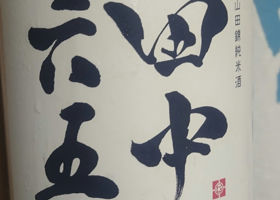 山田錦純米酒
田中
六五